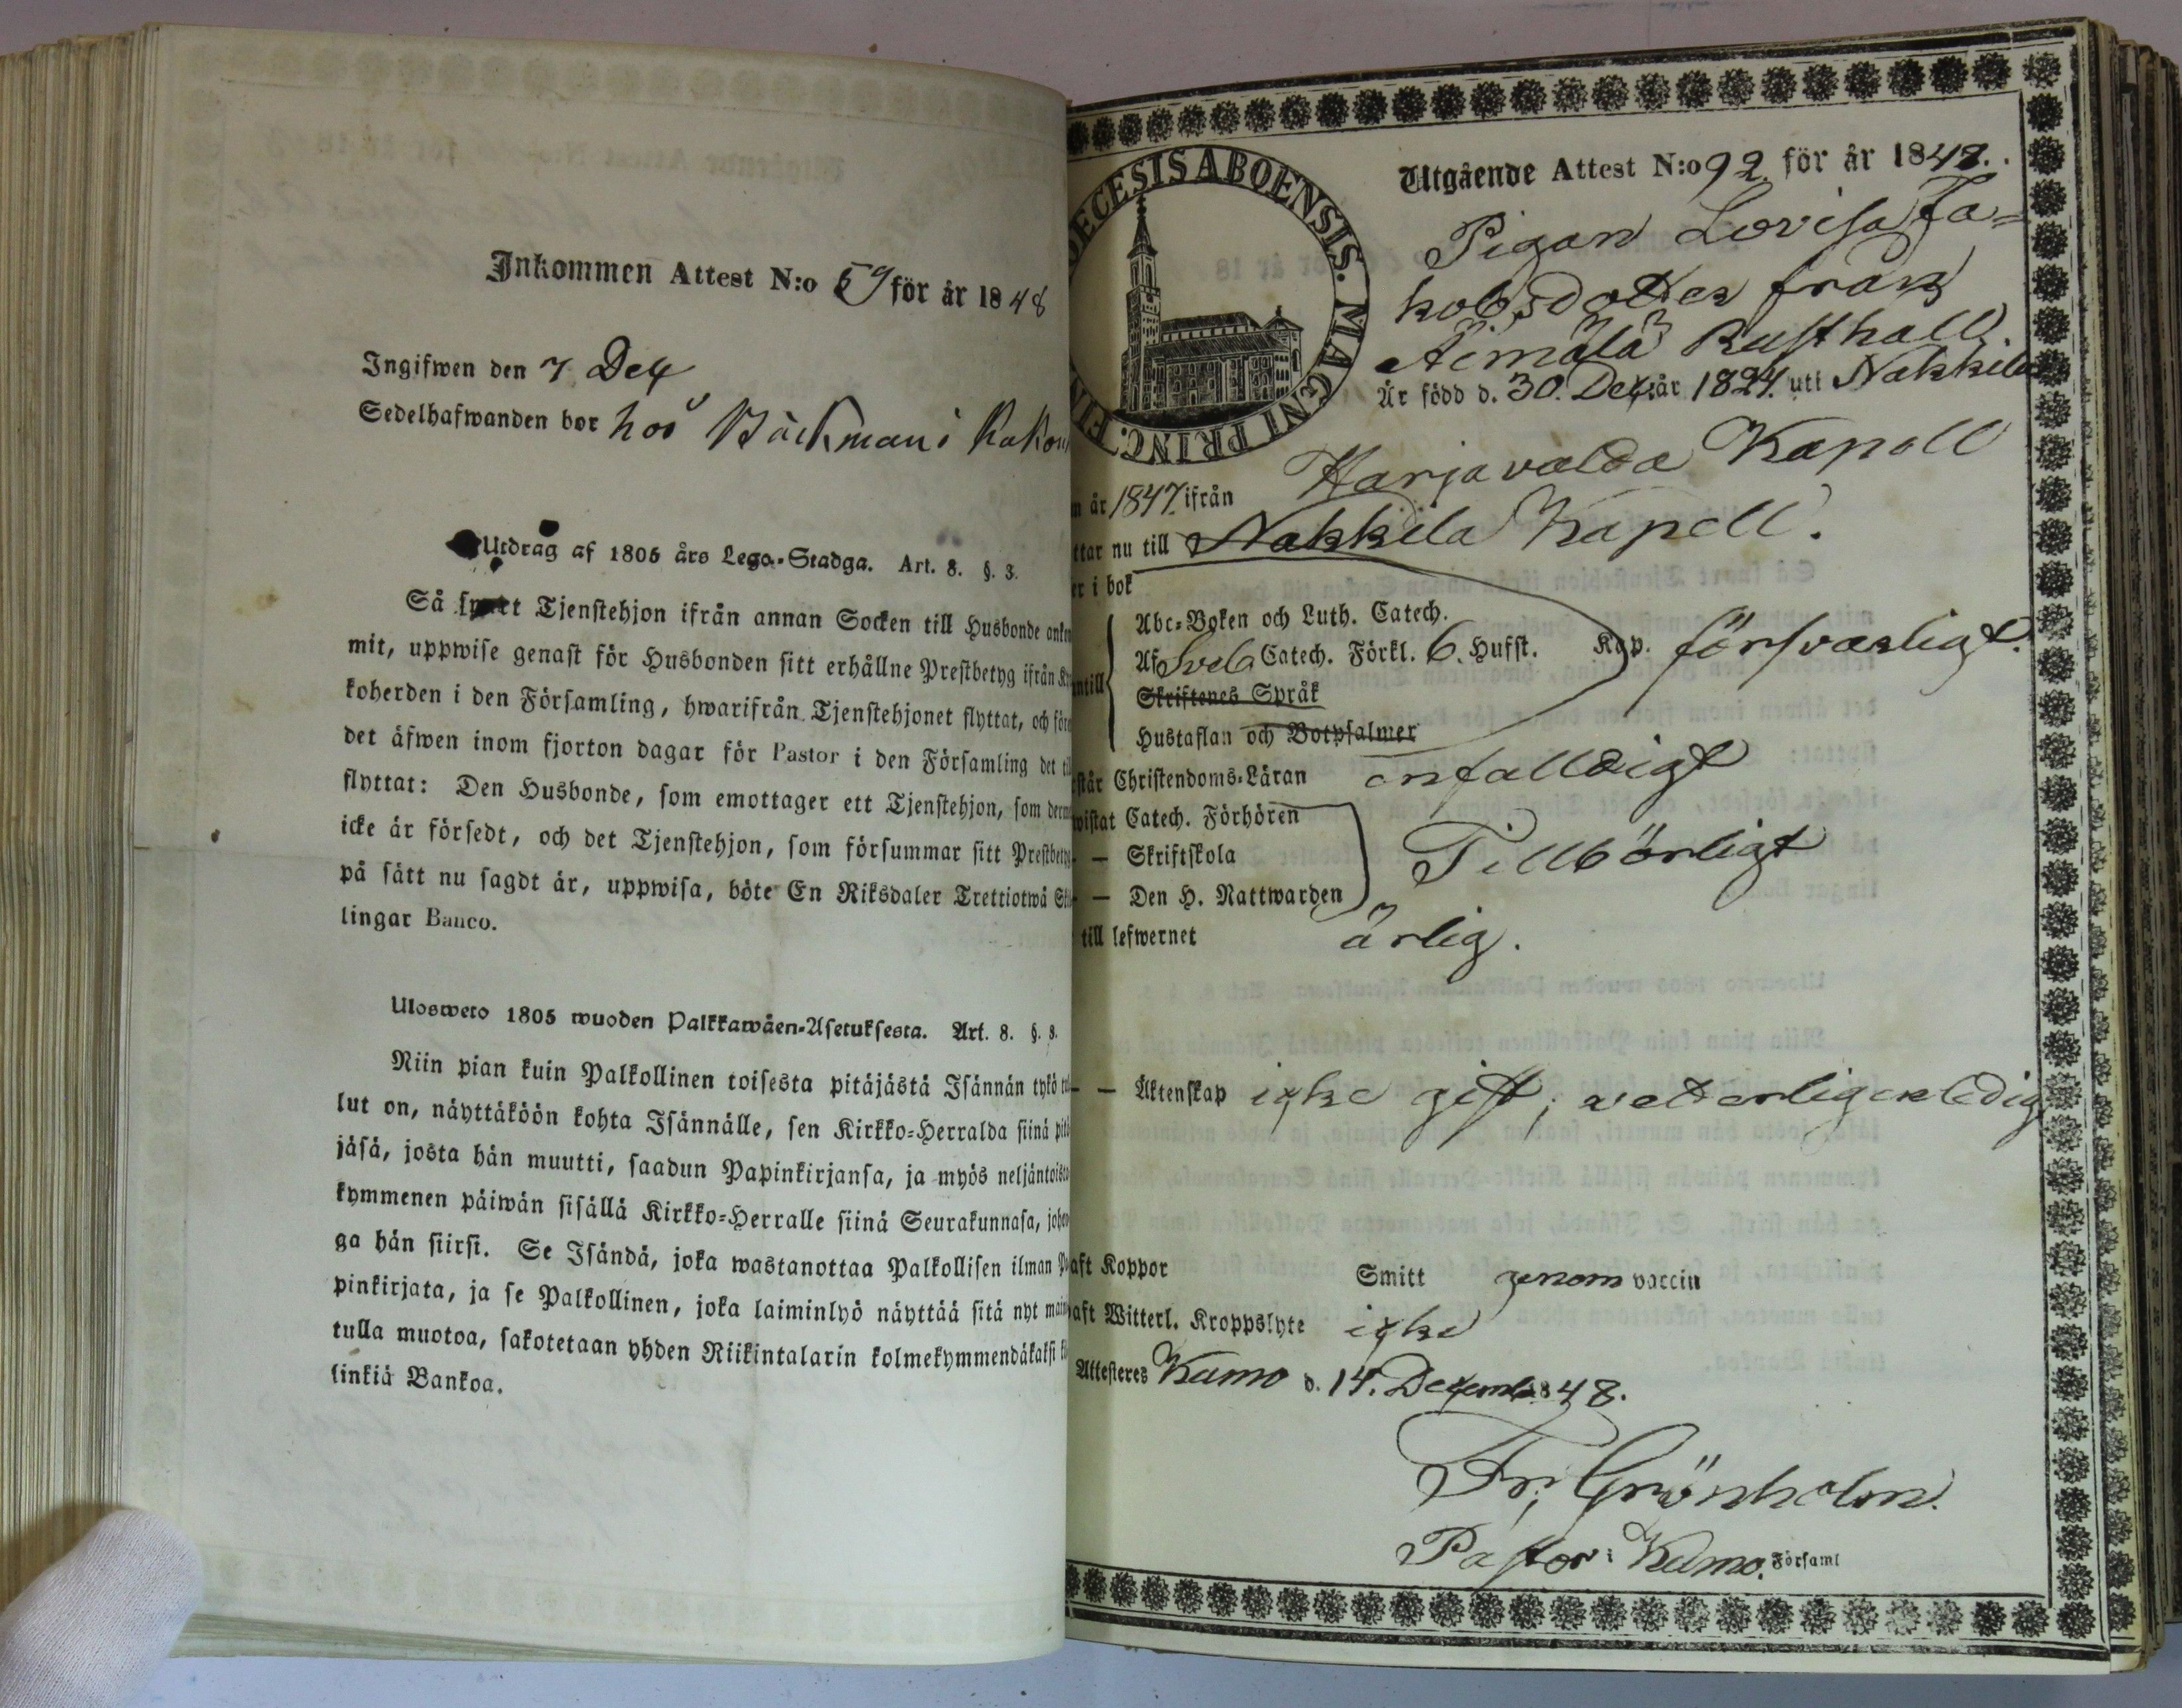 Inkommen Attest N:o 59 för år 1848
Ingifwen den 7 Dec
Sedelhafwanden bor hos Bäckman i
Utdrag af 1805 års Lego-Stadga. Art. 8. §. 3.
Så snart Tjenstehjon ifrån annan Socken till Husbonde ankom
mit, uppwise genast för Husbonden sitt erhållne Prestbetyg ifrån Ky
koherden i den Församling, hwarifrån Tjenstehjonet flyttat, och före
det äfwen inom fjorton dagar för Pastor i den Församling det til
flyttat: Den Husbonde, som emottager ett Tjenstehjon, som derm
icke är försedt, och det Tjenstehjon, som försummar sitt Prestbetyg
på sätt nu sagdt är, uppwisa, böte En Riksdaler Trettiotwå Skil
lingar Banco.
Ulosweto 1805 wuoden Palkkawäen-Asetuksesta. Art. 8. §. 3.
Niin pian kuin Palkollinen toisesta pitäjästä Isännän tykö tul
lut on, näyttäköön kohta Isännälle, sen Kirkko-Herralda siinä pitä
jäsä, josta hän muutti, saadun Papinkirjansa, ja myös neljäntoista
kymmenen päiwän sisällä Kirkko-Herralle siinä Seurakunnasa, johon
ga hän siirsi. Se Isändä, joka wastanottaa Palkollisen ilman Pa
pinkirjata, ja se Palkollinen, joka laiminlyö näyttää sitä nyt mainit
tulla muotoa, sakotetaan yhden Riikintalarin kolmekymmendäkaksi kil
linkiä Bankoa.
DECESIS ABOENSIS. MAGNI PRINC. FIN
Utgående Attest N:o 92. för år 1848.
Pigan Lovisa Ja=
kobsdotter från
Äimälä Rusthåll.
Är född d. 30. Dec. år 1824. uti Nakkila
Harjavalda Kapell
n år 1847 ifrån
ttar nu till Nakkila Kapell.
er i bok
Abc-Boken och Luth. Catech.
Af Sveb. Catech. Förkl. 6. Hufst. Kap. försvarligt.
ntill
Skriftenes Språk
Hustaflan och Botpsalmer
står Christendoms-Läran enfalldigt
wistat Catech. Förhören
— — Skriftskola Tillbörligt
— — Den H. Nattwarden
till lefwernet ärlig.
— — Äktenskap icke gift, vetterligen ledig
aft Koppor Smitt genom vaccin
aft Witterl. Kroppslyte icke
Attesteres Kumo d. 14. Decemb. 1848.
Fr. Grönholm.
Pastor i Kumo. Församl